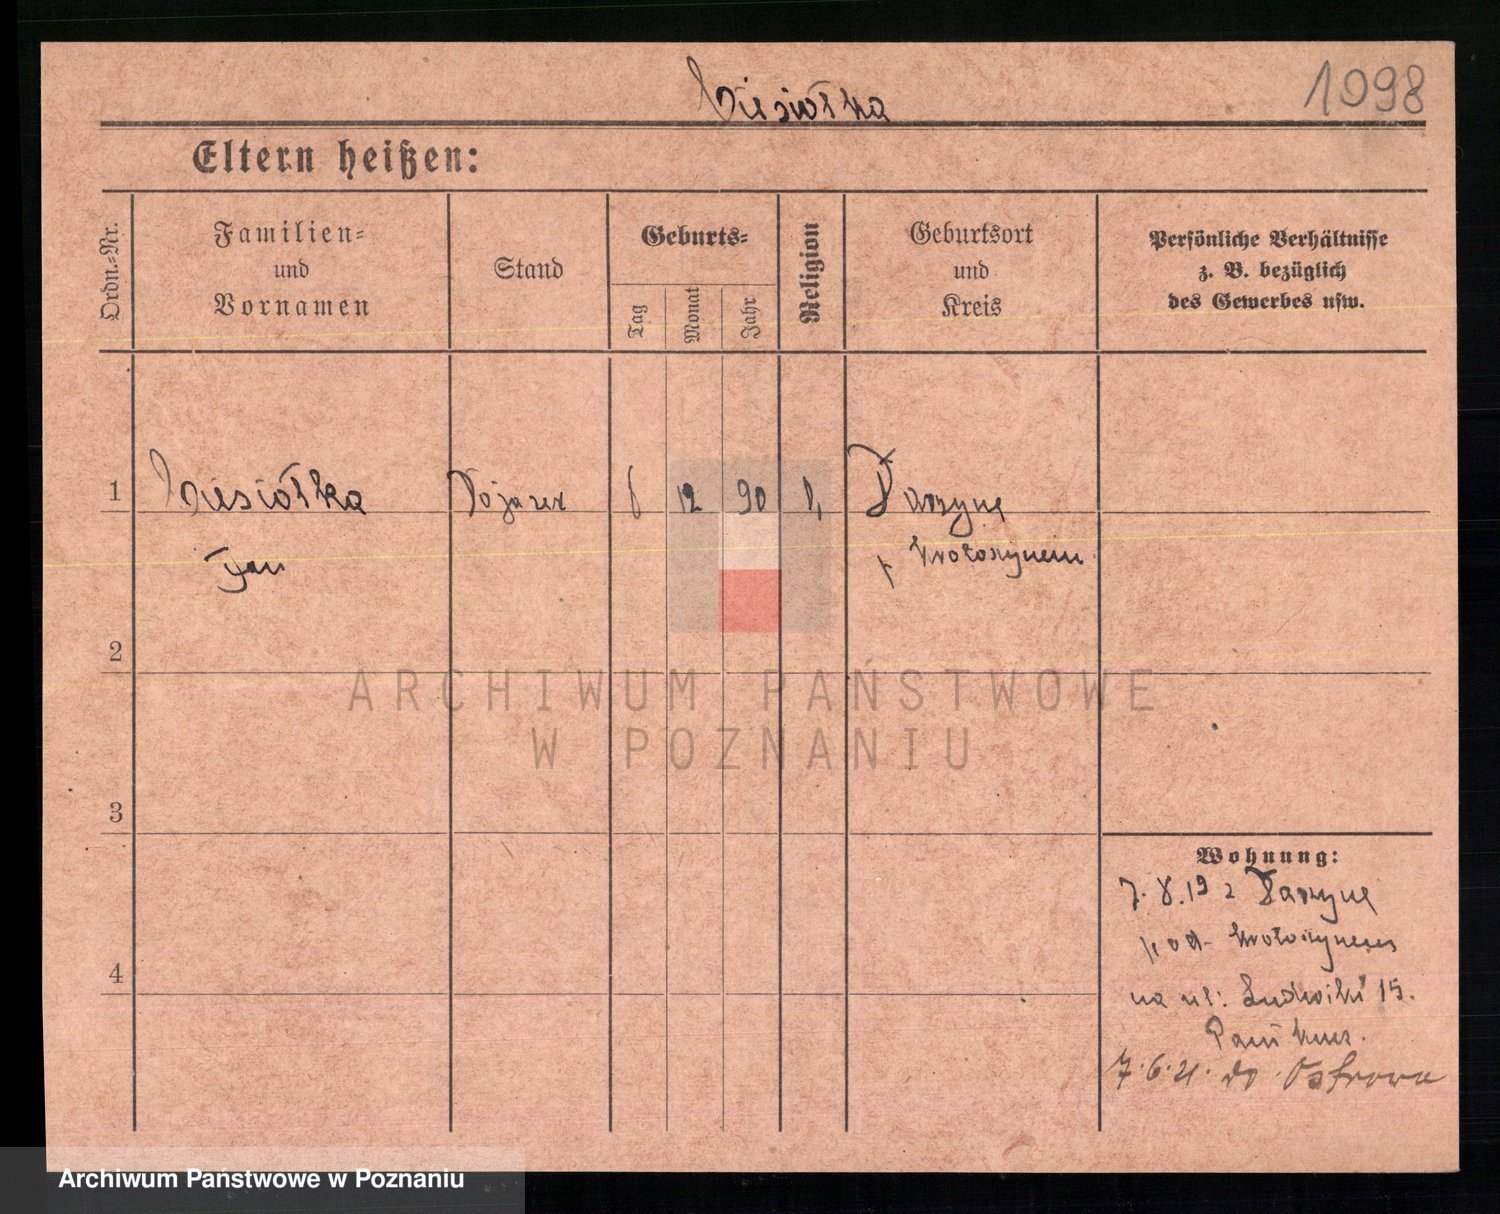 Ciesiółka
1098
Eltern heißen:
Ordn.-Nr.
Familien-
und
Vornamen
Stand
Geburts-
Tag
Monat
Jahr
Religion
Geburtsort
und
Kreis
Persönliche Verhältnisse
z. B. bezüglich
des Gewerbes usw.
1 Ciesiółka 12 90
Jan Krotoszynem
2
ARCHIWUM PAŃSTWOWE
W POZNANIU
3
Wohnung:
7. 8. 19 z
pod Krotoszynem
4
na ul: Ludwiki 15.
7.6.21. do Ostrowa
Archiwum Państwowe w Poznaniu